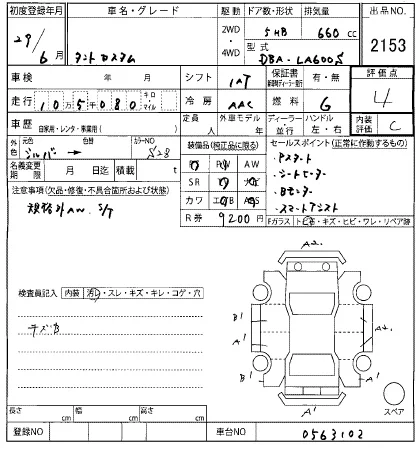 初度登録年月 車名・グレード 駆動 ドア数・形状 排気量 出品NO.
29年6月 タントカスタム 2WD・4WD 5HB 660cc 2153
型式 DBA-LA600S
車検 年 月 シフト IAT 保証書 有・無 評価点
走行 10万5千080 キロ マイル 冷房 AAC 燃料 G 4
車歴 自家用・レンタ・事業用( ) 定員 人 外車モデル 年 ディーラー・並行 ハンドル 左・右 内装評価 C
外色 元色 シルバー → 色替 カラーNO. S28 装備品(純正品に限る) セールスポイント(正常に作動するもの)
名義変更期限 月 日迄 積載 t
PS PW AW
SR
カワ エアB ABS
・Pスタート
・シートヒーター
・Bモニター
・スマートアシスト
R券 9200円
Fガラス
トビ石・キズ・ヒビ・ワレ・リペア跡
注意事項(欠品・修復・不具合箇所および状態)
規格外AW. S/T
検査員記入 内装 汚レ・スレ・キズ・キレ・コゲ・穴
キズB
A2
B1
A1
A1
B1
A2
A1
スペア
長さ cm 幅 cm 高さ cm
登録NO 車台NO 0563102